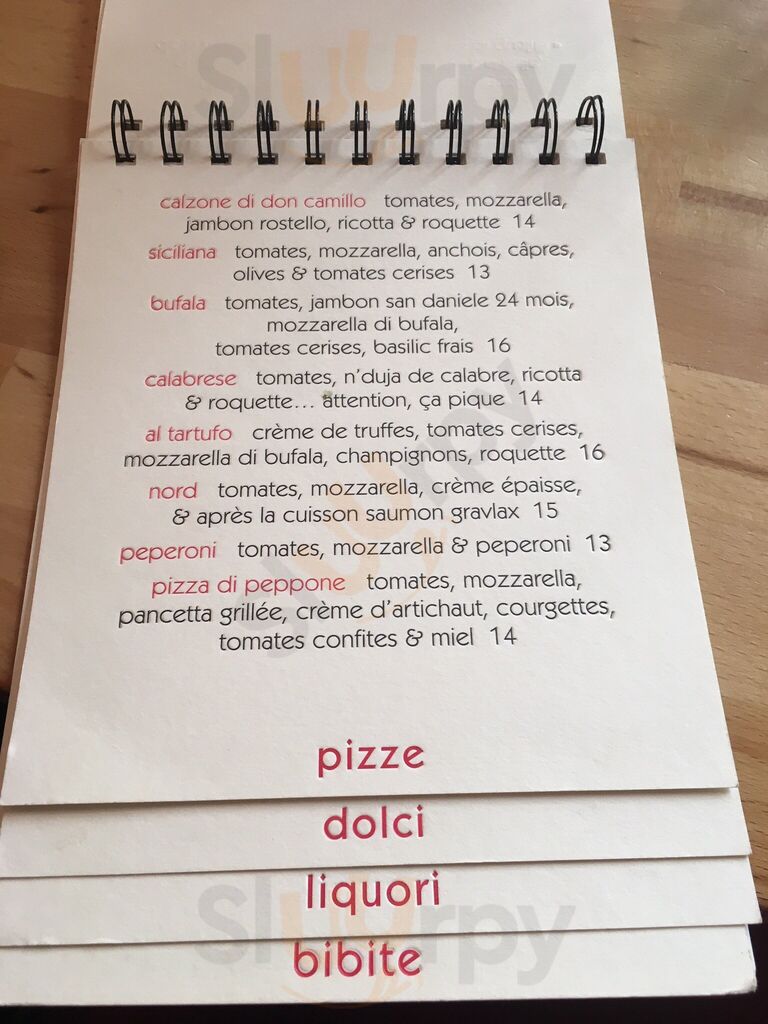 Sluurpy
calzone di don camillo tomates, mozzarella,
jambon rostello, ricotta & roquette 14
siciliana tomates, mozzarella, anchois, câpres,
olives & tomates cerises 13
bufala tomates, jambon san daniele 24 mois,
mozzarella di bufala,
tomates cerises, basilic frais 16
calabrese tomates, n'duja de calabre, ricotta
& roquette... attention, ça pique 14
al tartufo crème de truffes, tomates cerises,
mozzarella di bufala, champignons, roquette 16
nord tomates, mozzarella, crème épaisse,
& après la cuisson saumon gravlax 15
peperoni tomates, mozzarella & peperoni 13
pizza di peppone tomates, mozzarella,
pancetta grillée, crème d'artichaut, courgettes,
tomates confites & miel 14
Sluurpy
pizze
dolci
liquori
Sluurpy
bibite